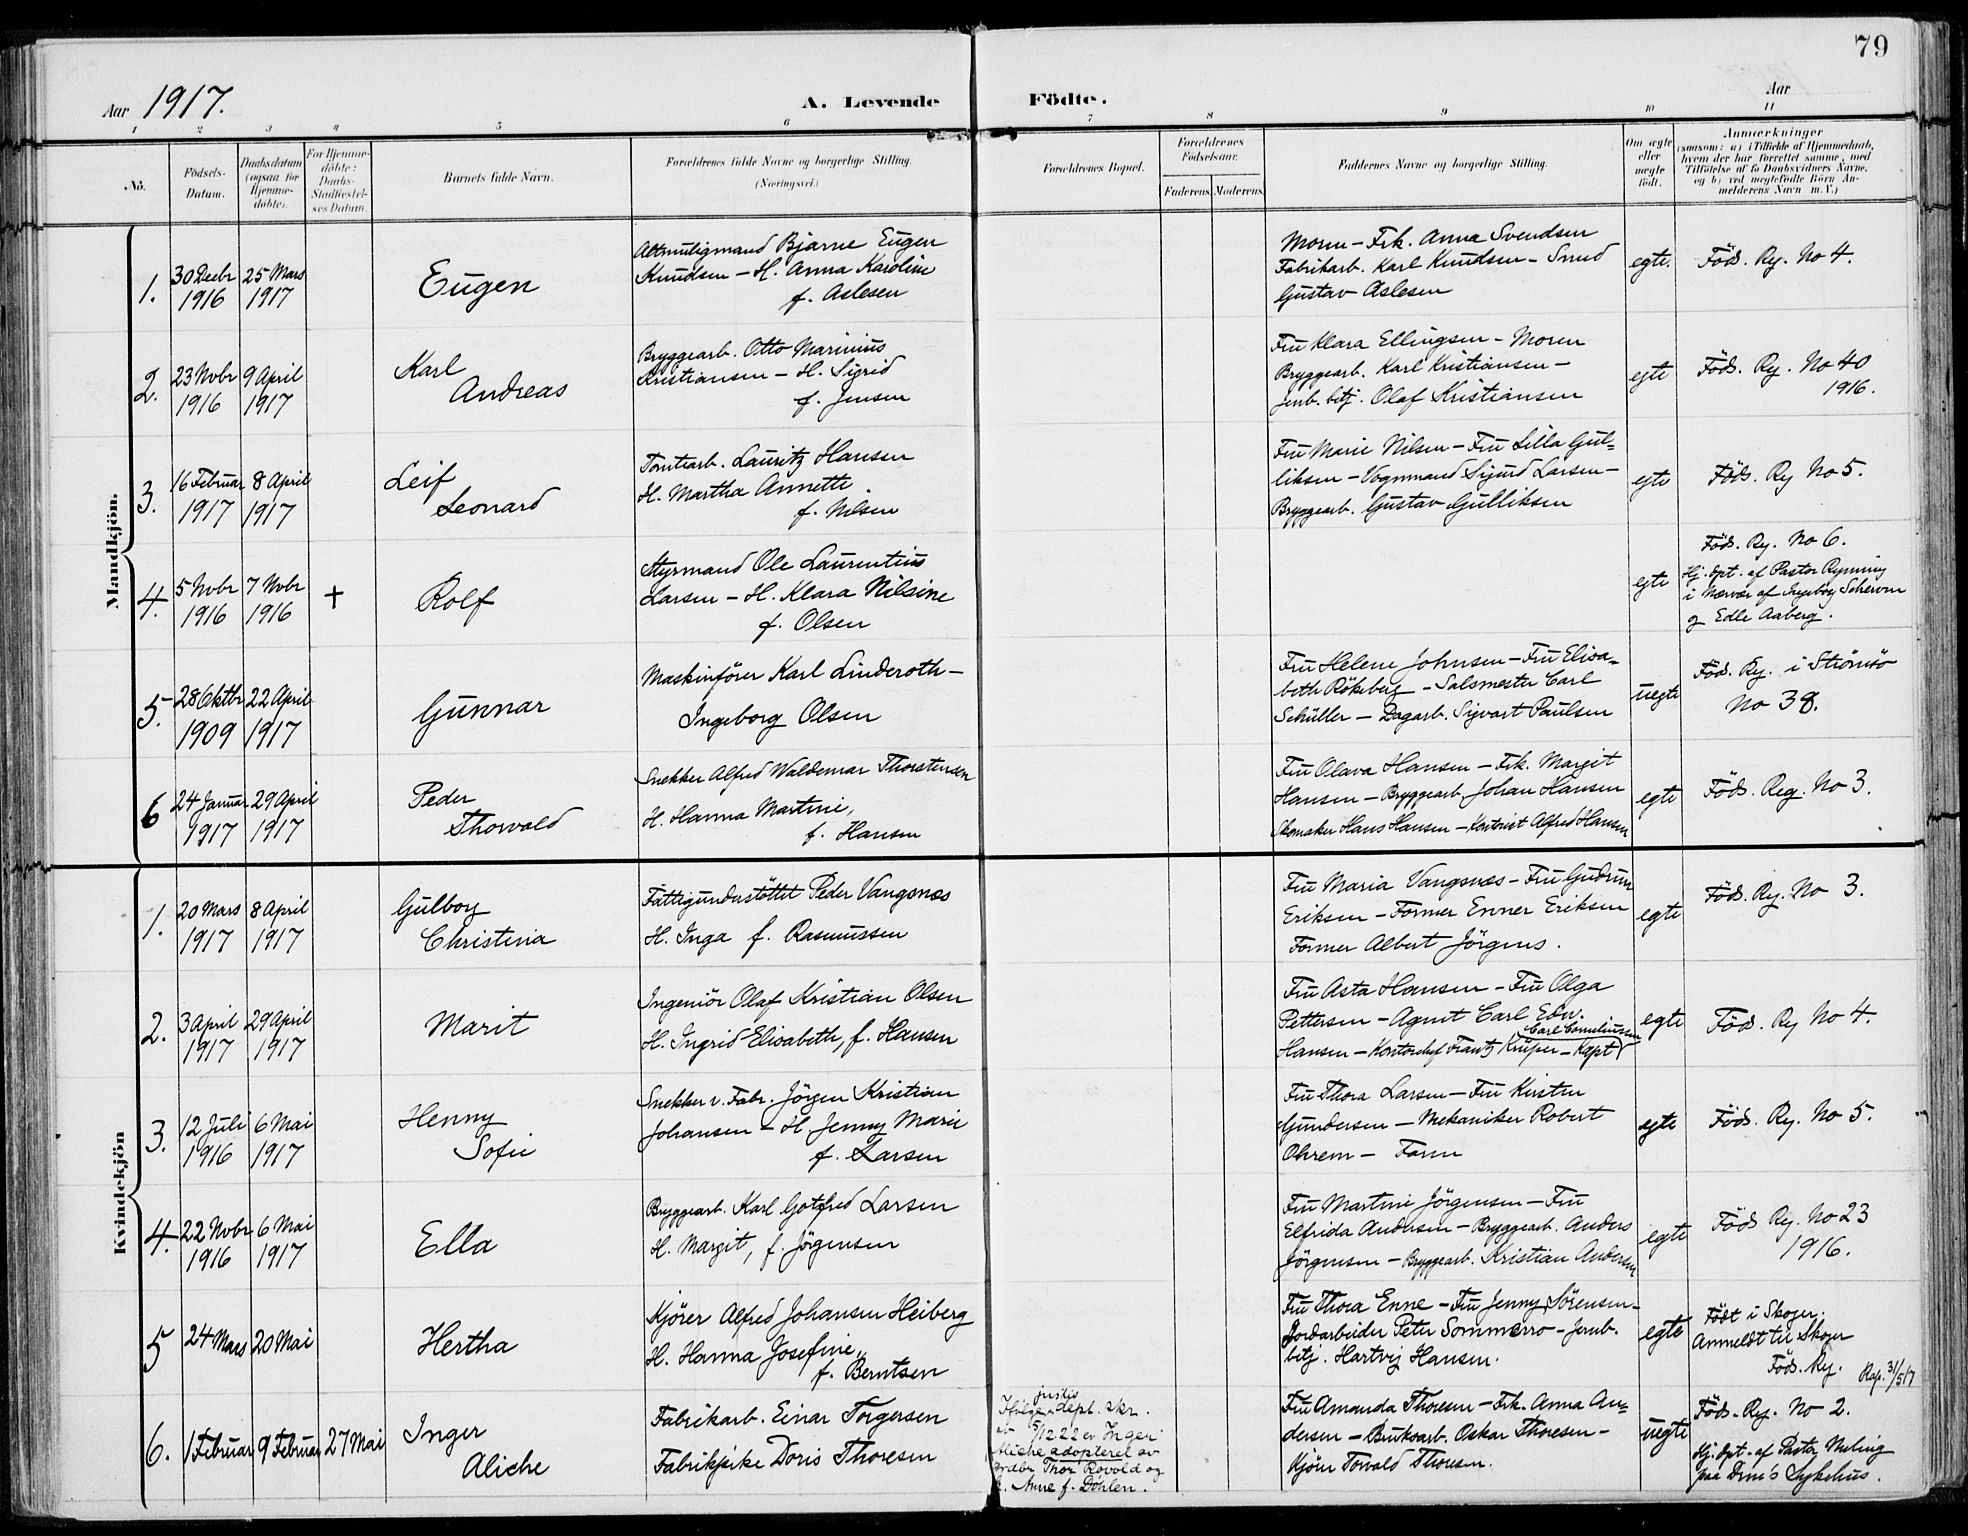 79
Aar 1917.
A. Levende Födte.
Aar
1 2 3 4 5 6 7 8 9 10 11
No.
Födsels-
Datum.
Daabsdatum
(ogsaa for
Hjemme-
döbte).
For Hjemme-
döbte:
Daabs-
Stadfæstel-
ses Datum.
Barnets fulde Navn.
Forældrenes fulde Navne og borgerlige Stilling.
(Næringsvei.)
Forældrenes Bopæl.
Forældrenes
Födselsaar.
Faderens. Moderens.
Faddernes Navne og borgerlige Stilling.
Om ægte
eller
uægte
født.
Anmærkninger
(saasom: a) i Tilfælde af Hjemmedaab,
hvem der har forrettet samme, med
Tilföielse af to Daabsvidners Navne,
og b) ved uægtefødte Börn An-
melderens Navn m. V.)
Mandkjön.
1.
30 Decbr
1916
25 Mars
1917
Eugen
Altmuligmand Bjarne Eugen
Knudsen - H. Anna Karoline
f. Aslesen
Moren - Frk. Anna Svendsen
Fabrikarb. Karl Knudsen - Smed
Gustav Aslesen
egte.
Föds. Rg. No 4.
2.
23 Nvbr
1916
9 April
1917
Karl
Andreas
Bryggearb. Otto Marinius
Kristiansen - H. Sigrid
f. Jensen
Fru Klara Ellingsen - Moren
Bryggearb. Karl Kristiansen -
Jernb. btj. Olaf Kristiansen
egte
Föds. Rg. No 40
1916.
3.
16 Februar
1917
8 April
1917
Leif
Leonard
Tomtearb. Lauritz Hansen
H. Martha Annette
f. Nilsen
Fru Marie Nilsen - Fru Lilla Gul-
liksen - Vognmand Sigurd Larsen -
Bryggearb. Gustav Gulliksen
egte
Föds. Rg No 5.
4.
5 Nvbr
1916
7 Nvbr
1916
+
Rolf
Styrmand Ole Laurentius
Larsen - H. Klara Nilsine
f. Olsen
egte
Föds. Rg. No 6.
Hj. dpt. af Pastor Rynning
i Nærvær af Ingeborg
og Edle Aaberg.
5.
28 Oktbr
1909
22 April
1917
Gunnar
Maskinförer Karl Linderoth -
Ingeborg Olsen
Fru Helene Johnsen - Fru Elisa-
beth Rökeberg - Salsmester Carl
Schüller - Dagarb. Sigvart Paulsen
uegte
Föd. Rg. i Strömsö
No 38.
6
24 Januar
1917
29 April
1917
Peder
Thorvald
Snekker Alfred Waldemar Thorstensen
H. Hanna Martine,
f. Hansen
Fru Olava Hansen - Frk. Margit
Hansen - Bryggearb. Johan Hansen
Skomaker Hans Hansen - Kontorist Alfred Hansen
egte
Föds. Reg. No 3.
Kvindekjön
1.
20 Mars
1917
8 April
1917
Gulborg
Christina
Fattigunderstöttet Peder Vangsnes
H. Inga f. Rasmussen
Fru Maria Vangsnæs - Fru Gudrun
Eriksen - Former Enner Eriksen
Former Albert Jörgens.
egte
Föds. Rg. No 3.
2.
3 April
1917
29 April
1917
Marit
Ingeniör Olaf Kristian Olsen
H. Ingrid Elisabeth, f. Hansen
Fru Asta Hansen - Fru Olga
Pettersen - Agent Carl Edv.
Carl Corneliussen
Hansen - Kontorchef Frantz Krüger - Kapt
egte
Föds. Rg No 4.
3.
12 Juli
1916
6 Mai
1917
Henny
Sofie
Snekker v. Fabr. Jörgen Kristian
Johansen - H. Jenny Marie
f. Larsen
Fru Thora Larsen - Fru Kirsten
Gundersen - Mekaniker Robert
Ohrem - Faren
egte
Föds. Rg. No 5.
4.
22 Nvbr
1916
6 Mai
1917
Ella
Bryggearb. Karl Gotfred Larsen
H. Margit, f. Jörgensen
Fru Martine Jörgensen - Fru
Elfrida Andersen - Bryggearb. Anders
Jörgensen - Bryggearb. Kristian Andersen
egte
Föds Rg. No 23
1916.
5
24 Mars
20 Mai
Hertha
Kjörer Alfred Johansen Heiberg
H. Hanna Josefine,
f. Berntsen
Fru Thora Enne - Fru Jenny Sörensen -
Jordarbeider Peter Sommerro - Jernb.
btj. Hartvig Hansen.
egte
Födt i Skoger.
Anmeldt til Skoger
Föds. Rg. Rap. 31/5 17
6.
1 Februar
9 Februar
27 Mai
Inger
Aliche
Fabrikarb. Einar Torgersen
Fabrikpike Doris Thoresen
justis
Ifölge dept. skr.
av 5/12 22 er Inger
Aliche adopteret av
Thor Rovold og
Anne f. Döhlen.
Fru Amanda Thoresen - Frk. Anna An-
dersen - Bruksarb. Oskar Thoresen -
Kjörer Torvald Thoresen.
uegte
Föds. Rg. No 2.
Hj. dpt. af Pastor
paa Drm's Sykehus.